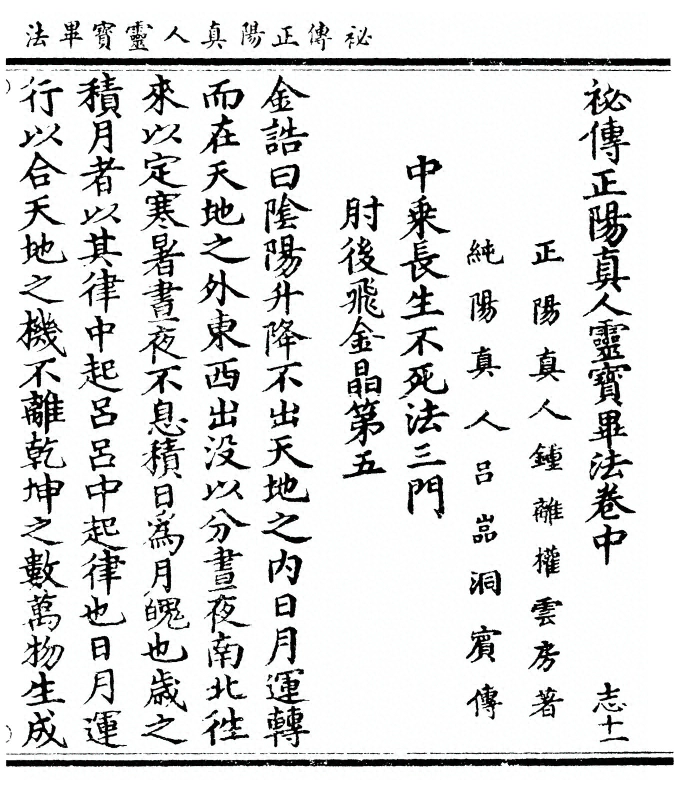 祕傳正陽真人靈寶畢法
祕傳正陽真人靈寶畢法卷中　志十一
正陽真人鍾離權雲房著
純陽真人呂嵓洞賓傳
中乗長生不死法三門
肘後飛金晶第五
金誥曰隂陽升降不出天地之内日月運轉
而在天地之外東西出没以分晝夜南北徃
來以定寒暑晝夜不息積日爲月魄也歳之
積月者以其律中起呂呂中起律也日月運
行以合天地之機不離乾坤之數萬物生成